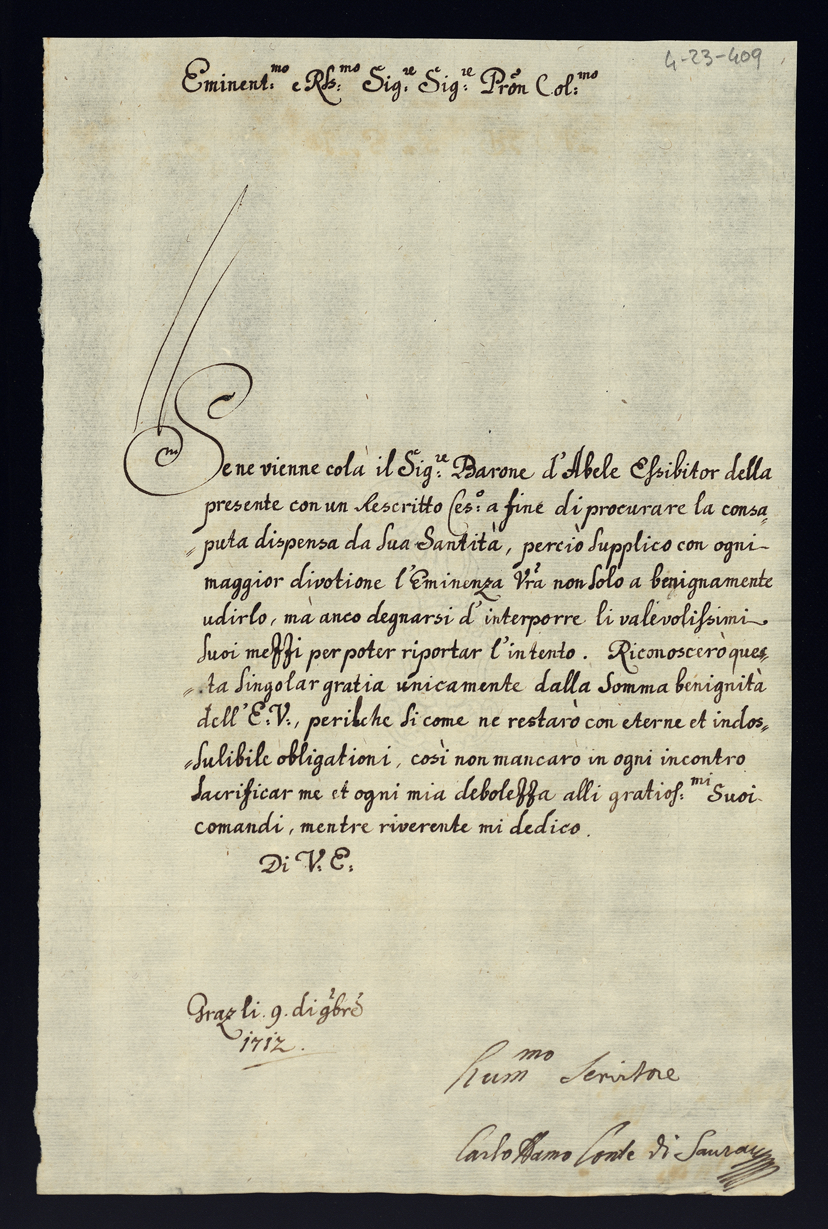 4-23-409
Eminent:mo e Rss:mo Sig:re Sig:re Prõn Col:mo
Se ne vienne colà il Sig:re Barone d'Abele Essibitor della
presente con un Rescritto Ces:o a fine di procurare la consa„
„puta dispensa da Sua Santità, perciò supplico con ogni
maggior divotione l'Eminenza Vrã non solo a benignamente
udirlo, mà anco degnarsi d'interporre li valevolissimi
suoi mezzi per poter riportar l'intento. Riconoscerò ques„
„ta singolar gratia unicamente dalla somma benignità
dell'E:V:, perilche si come ne restarò con eterne et indos„
„sulibile obligationi, così non mancarò in ogni incontro
sacrificar me et ogni mia debolezza alli gratios:mi Suoi
comandi, mentre riverente mi dedico.
Di V: E:
Graz li 9. di 9brẽ
1712.
Hummo Servitore
Carlo Conte di Saurau